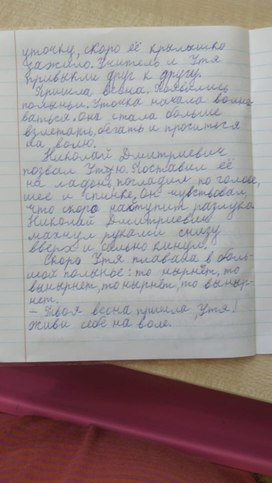 уточку, скоро её крылышко
зажило. Учитель и Утя
привыкли друг к другу.
Пришла весна. Появились
полыньи. Уточка начала волно
ваться. Она стала больше
взлетать, бегать и проситься
на волю.
Николай Дмитриевич
позвал Утю. Поставил её
на ладонь, погладил по голове,
шее и спинке. Он чувствовал,
что скоро наступит разлука.
Николай Дмитриевич
махнул руками снизу
вверх и сильно кинул.
Скоро Утя плавала в боль-
шой полынье: то нырнёт, то
вынырнет, то нырнёт, то выныр-
нет.
– Твоя весна пришла, Утя!
Живи себе на воле.